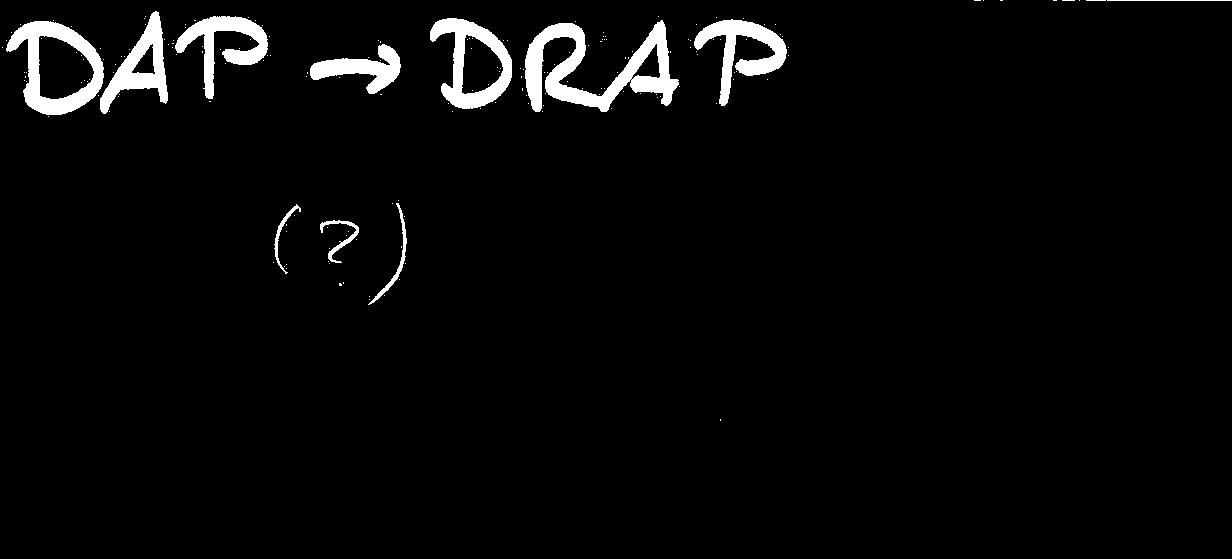 DAP → DRAP
(?)